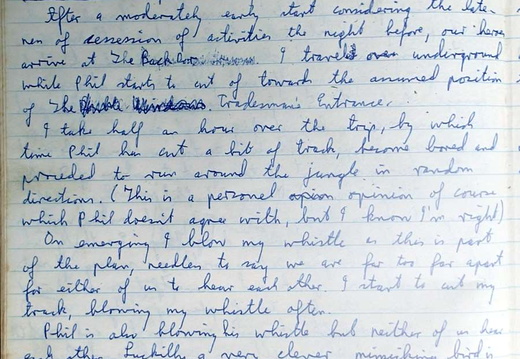 After a moderately early start considering the late-
ness of cessession of activities the night before, our heroes
arrive at The Back door. I travel over underground
while Phil starts to cut of towards the assumed position
of The Tradesman's Entrance.
I take half an hour over the trip, by which
time Phil has cut a bit of track, become bored and
proceded to run around the jungle in random
directions. (This is a personal opinion of course
which Phil doesn't agree with, but I know I'm right)
On emerging I blow my whistle as this is part
of the plan, needless to say we are far too far apart
for either of us to hear each other. I start to cut my
track, blowing my whistle often.
Phil is also blowing his whistle but neither of us hear
each other. Luckily a very clever mimicking bird is